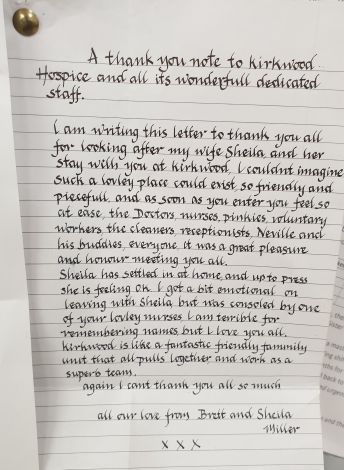 A thank you note to Kirkwood
Hospice and all its wonderfull dedicated
staff.
I am writing this letter to thank you all
for looking after my wife Sheila and her
stay with you at Kirkwood, I couldnt imagine
such a lovley place could exist so friendly and
piecefull, and as soon as you enter you feel so
at ease, the Doctors, nurses, pinkies, voluntary
workers, the cleaners, receptionists, Neville and
his buddies, everyone, it was a great pleasure
and honour meeting you all.
Sheila has settled in at home, and up to press
she is feeling ok. I got a bit emotional on
leaving with Sheila but was consoled by one
of your lovley nurses I am terrible for
remembering names but I love you all.
Kirkwood is like a fantastic friendly fammily
unit that all pulls together and work as a
superb team.
again I cant thank you all so much
all our love from Brett and Sheila
Miller
x x x